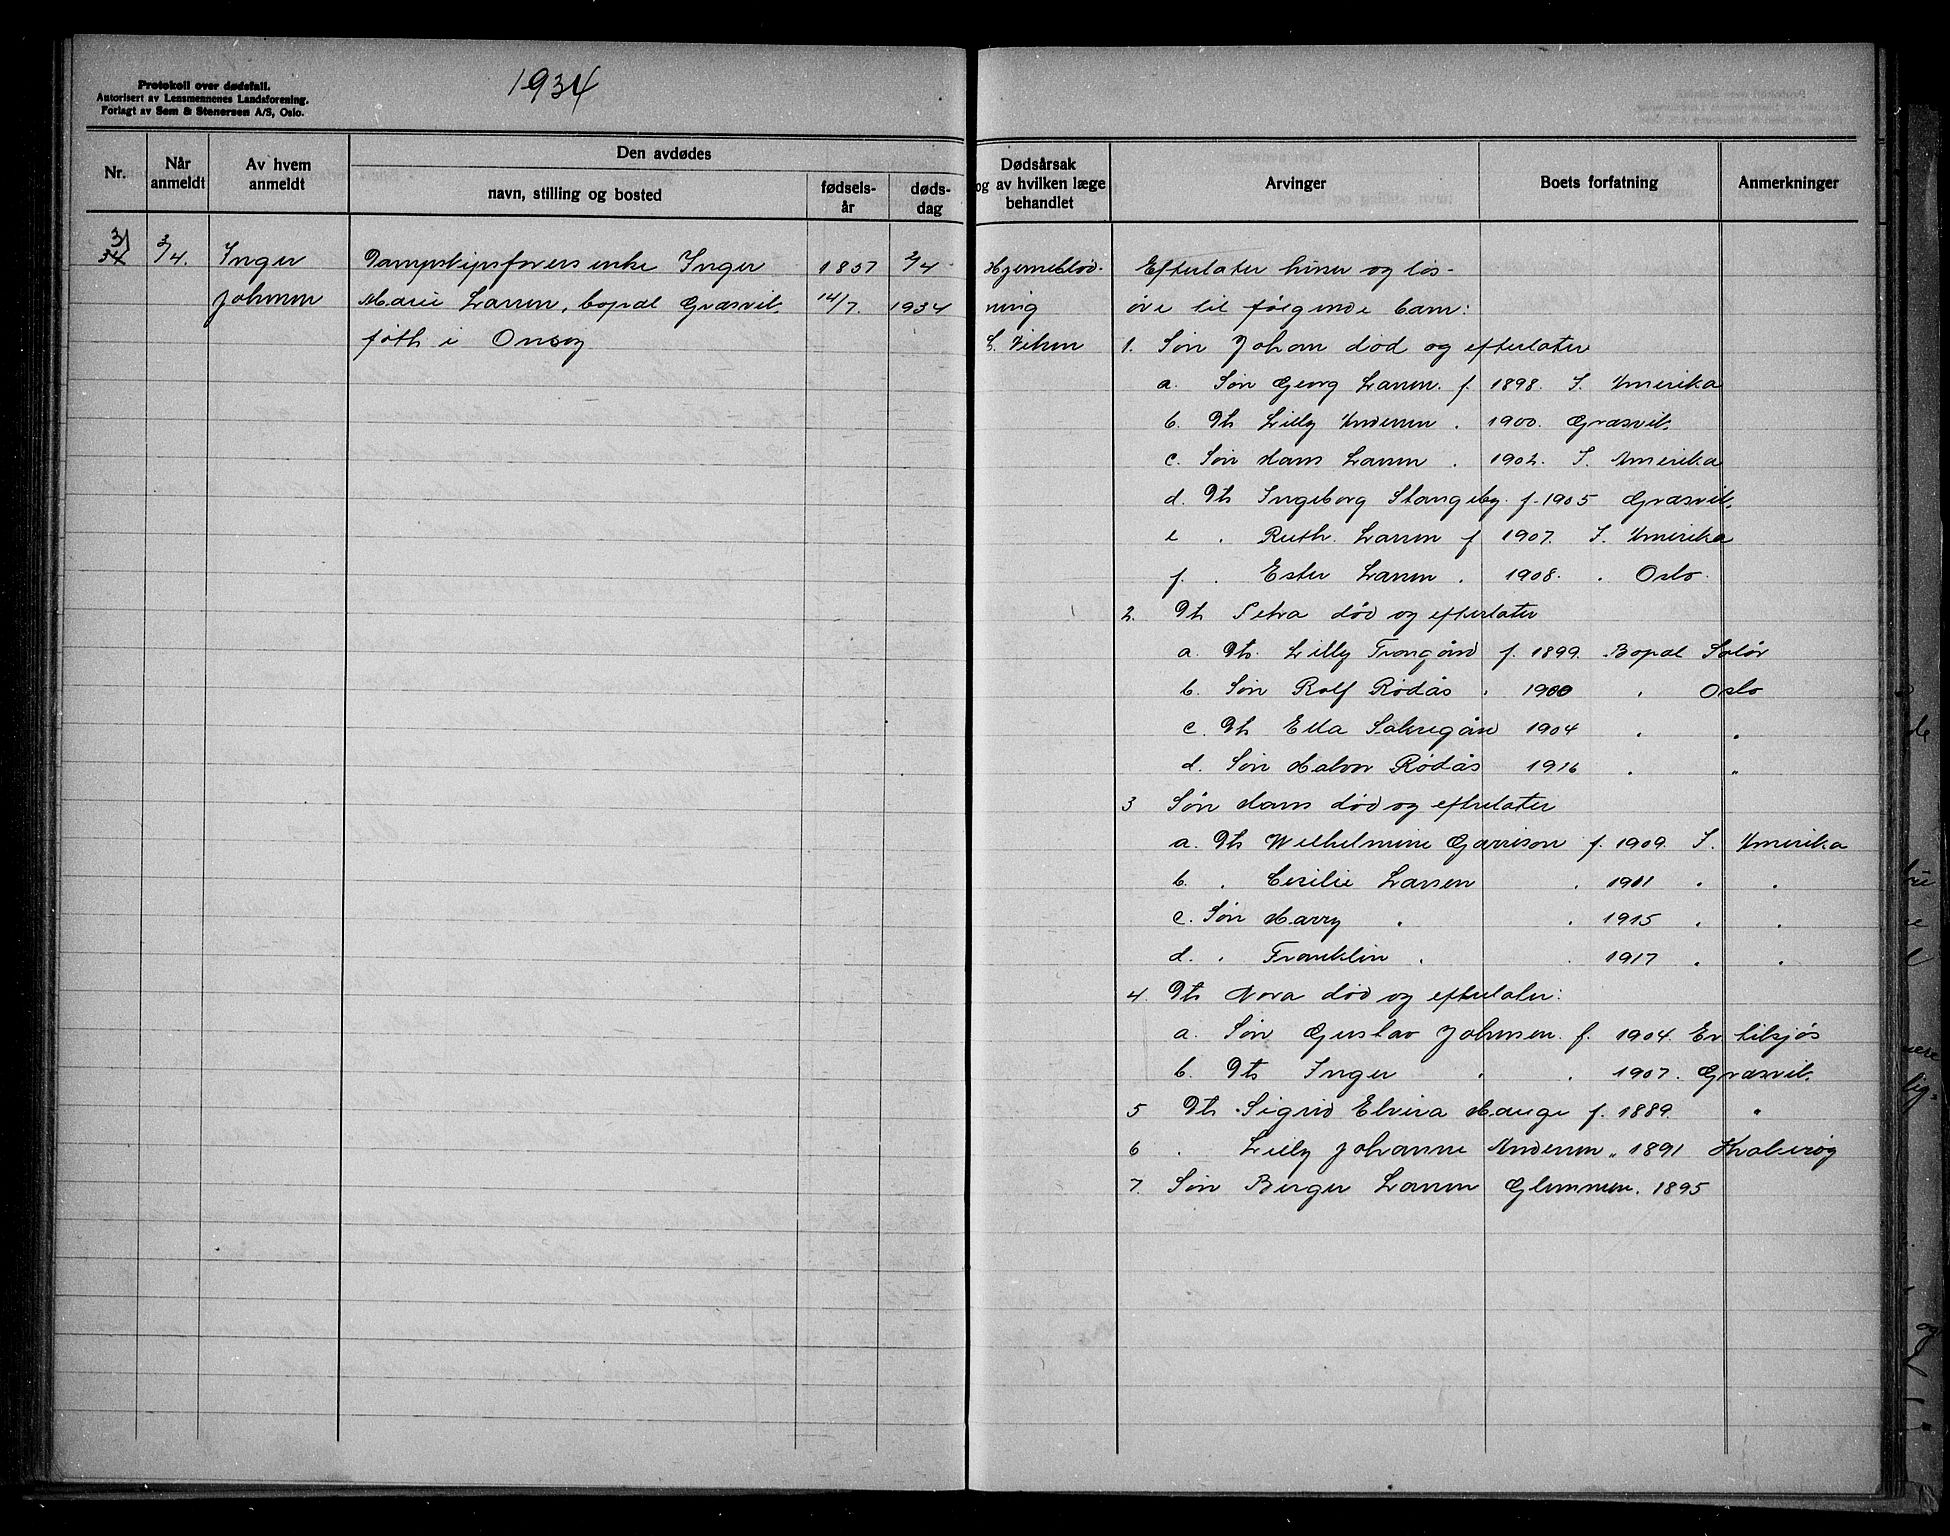 Protokoll over dødsfall.
Autorisert av Lensmennenes Landsforening.
Forlagt av Sem & Stenersen A/S, Oslo.
1934
Nr.
Når anmeldt
Av hvem anmeldt
Den avdødes
navn, stilling og bosted
fødsels-år
døds-dag
Dødsårsak og av hvilken læge behandlet
Arvinger
Boets forfatning
Anmerkninger
31
34
3/4.
Inger
Johnsen
Dampskipsførers enke Inger
Marie Larsen, bopæl Græsvik,
føth i Onsøy
1857
14/7.
2/4
1934
Hjerneblød-
ning
L. Viken
Efterlater hiner og løs-
øre til følgende barn:
1. Søn Johan død og efterlater
a. Søn Georg Larsen. f. 1898. I. Amerika
b. Dtr Lilly Andersen . 1900. Græsvik.
c. Søn Hans Larsen . 1902. I. Amerika
d. Dtr Ingeborg Stangeby. f. 1905 Græsvik.
e . Ruth. Larsen f 1907. I. Amerika
f. . Ester Larsen . 1908. . Oslo.
2. Dtr Petra død og efterlater
a. Dtr. Lilly f. 1899. Bopæl Solør
b. Søn Rolf Rødås . 1900 . Oslo
c. Dtr Edda 1904 . .
d. Søn Halvor Rødås 1916 . "
3 Søn Hans død og efterlater
a. Dtr Wilhelmine Garrison f. 1909. I. Amerika
b. . Cecilie Larsen . 1911 . .
c. Søn Harry . . 1915 . .
d. . Franklin . . 1917 . .
4. Dtr Nora død og efterlater:
a. Søn Gustav Johnsen. f. 1904. Er tilsjøs
b. Dtr Inger . . 1907. Græsvik.
5 Dtr Sigrid Elvira Hauge f. 1889. "
6 . Lilly Johanne Andersen " 1891 Kraberøy
7. Søn Birger Larsen Glemmen. 1895